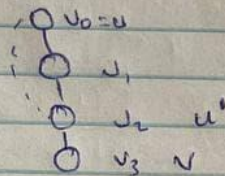 v₀ = u
v₁
v₂ u'
v₃ v